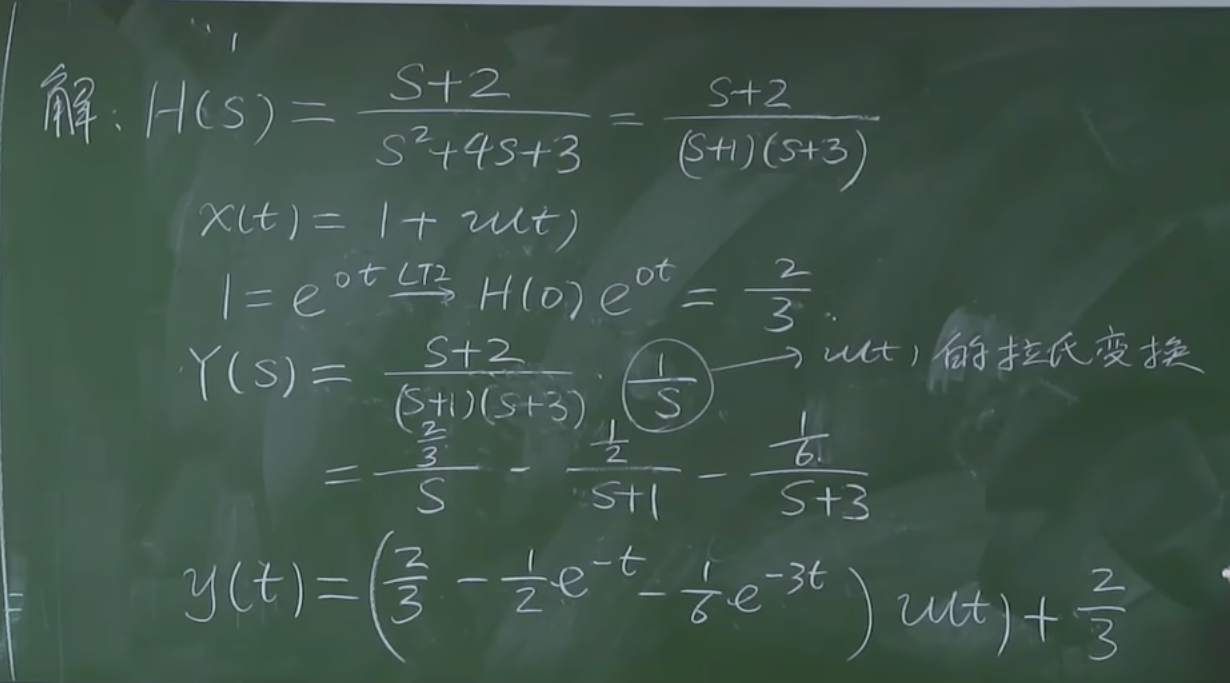 解: H(s) = \frac{s+2}{s^2+4s+3} = \frac{s+2}{(s+1)(s+3)}
x(t) = 1 + u(t)
1 = e^{0t} \xrightarrow{LTI} H(0) e^{0t} = \frac{2}{3}.
Y(s) = \frac{s+2}{(s+1)(s+3)} · \frac{1}{s} → u(t) 的拉氏变换
= \frac{\frac{2}{3}}{s} - \frac{\frac{1}{2}}{s+1} - \frac{\frac{1}{6}}{s+3}
y(t) = (\frac{2}{3} - \frac{1}{2}e^{-t} - \frac{1}{6}e^{-3t}) u(t) + \frac{2}{3}